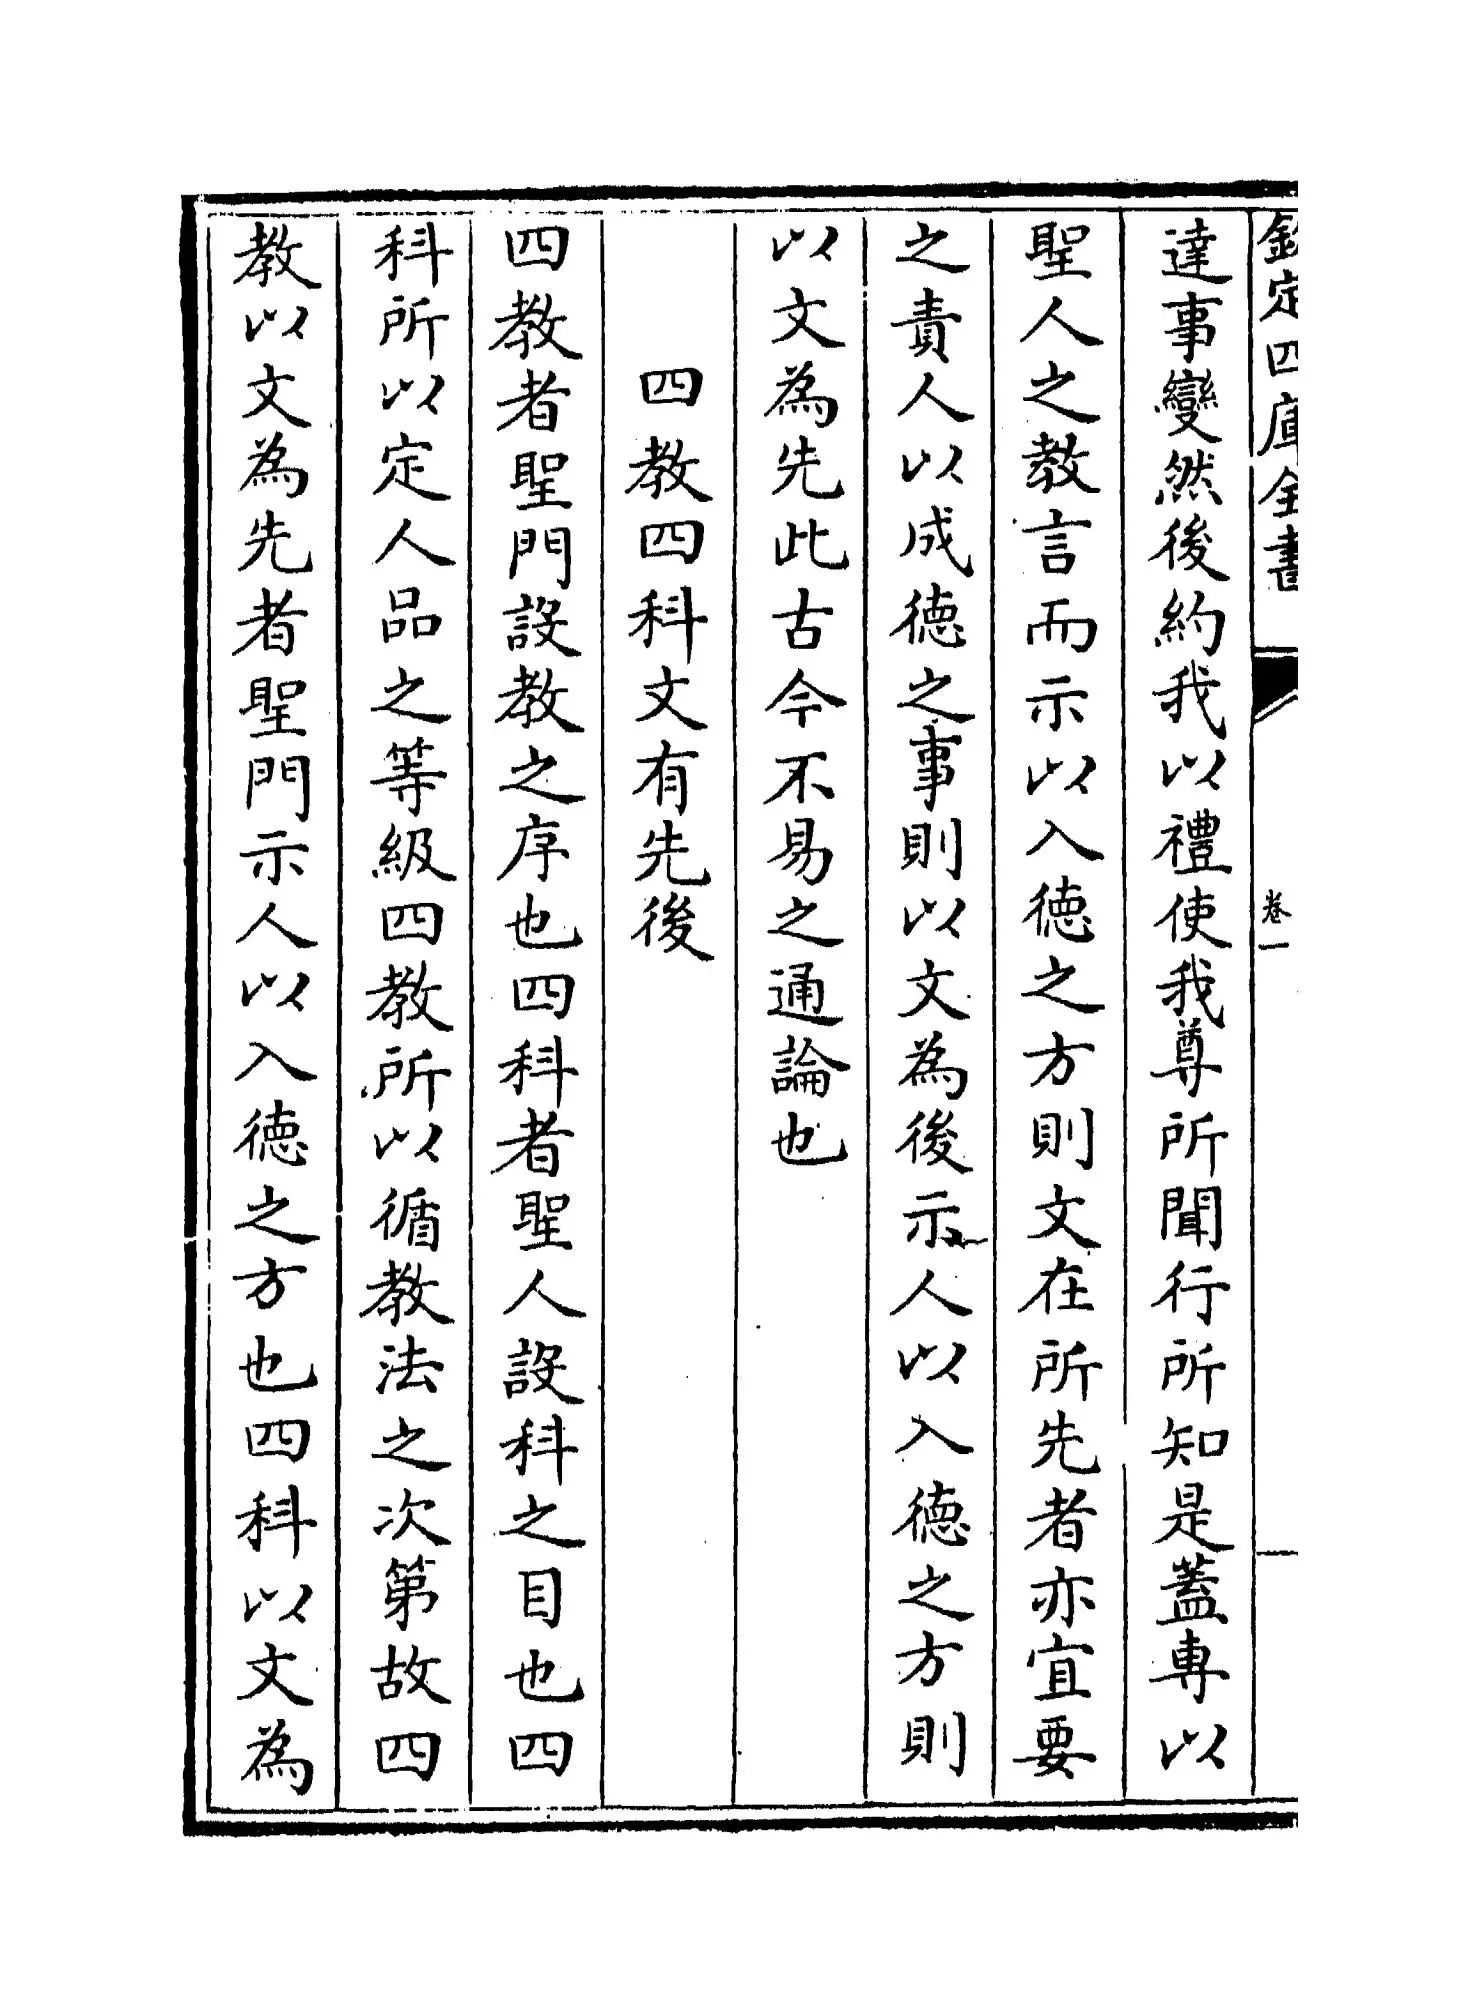 欽定四庫全書
卷一
達事變然後約我以禮使我尊所聞行所知是蓋専以
聖人之教言而示以入德之方則文在所先者亦宜要
之責人以成德之事則以文為後示人以入德之方則
以文為先此古今不易之通論也
四教四科文有先後
四教者聖門設教之序也四科者聖人設科之目也四
科所以定人品之等級四教所以循教法之次第故四
教以文為先者聖門示人以入德之方也四科以文為